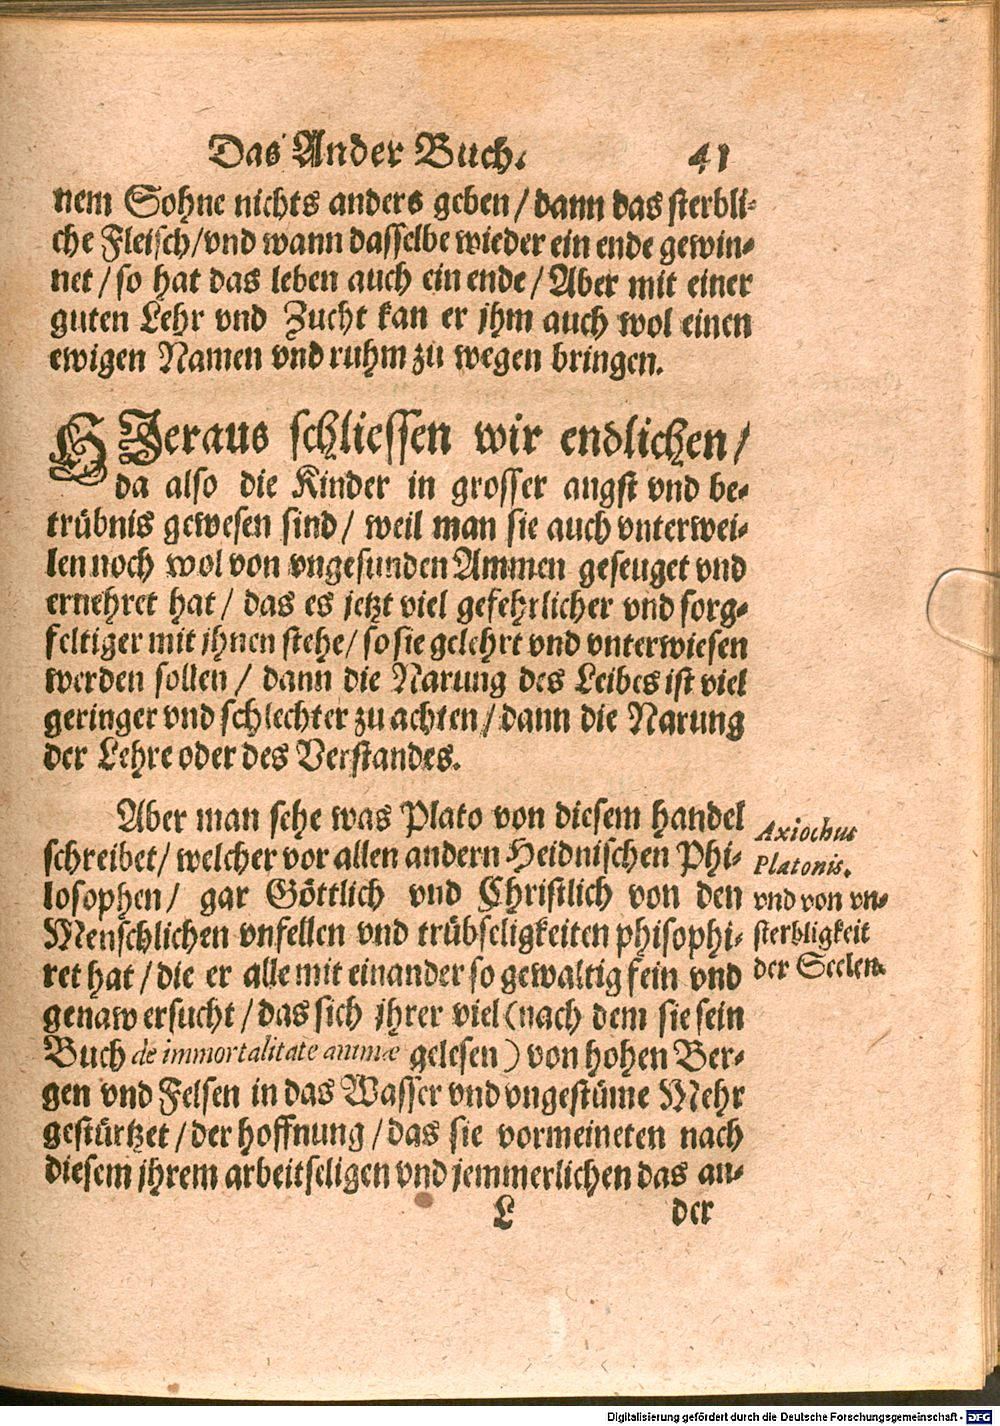 Das Ander Buch. 41
nem Sohne nichts anders geben / dann das sterbli-
che Fleisch / vnd wann dasselbe wieder ein ende gewin-
net / so hat das leben auch ein ende / Aber mit einer
guten Lehr vnd Zucht kan er jhm auch wol einen
ewigen Namen vnd ruhm zu wegen bringen.
HJeraus schliessen wir endlichen /
da also die Kinder in grosser angst vnd be-
trübnis gewesen sind / weil man sie auch vnterwei-
len noch wol von vngesunden Ammen geseuget vnd
ernehret hat / das es jetzt viel gefehrlicher vnd sorg-
feltiger mit jhnen stehe / so sie gelehrt vnd vnterwiesen
werden sollen / dann die Narung des Leibes ist viel
geringer vnd schlechter zu achten / dann die Narung
der Lehre oder des Verstandes.
Aber man sehe was Plato von diesem handel
schreibet / welcher vor allen andern Heidnischen Phi-
losophen / gar Göttlich vnd Christlich von den
Menschlichen vnfellen vnd trübseligkeiten phisophi-
ret hat / die er alle mit einander so gewaltig fein vnd
genaw ersucht / das sich jhrer viel (nach dem sie sein
Buch de immortalitate animæ gelesen) von hohen Ber-
gen vnd Felsen in das Wasser vnd vngestüme Mehr
gestürtzet / der hoffnung / das sie vormeineten nach
diesem jhrem arbeitseligen vnd jemmerlichen das an-
L der
Axiochus
Platonis.
vnd von vn-
sterbligkeit
der Seelen.
Digitalisierung gefördert durch die Deutsche Forschungsgemeinschaft - DFG